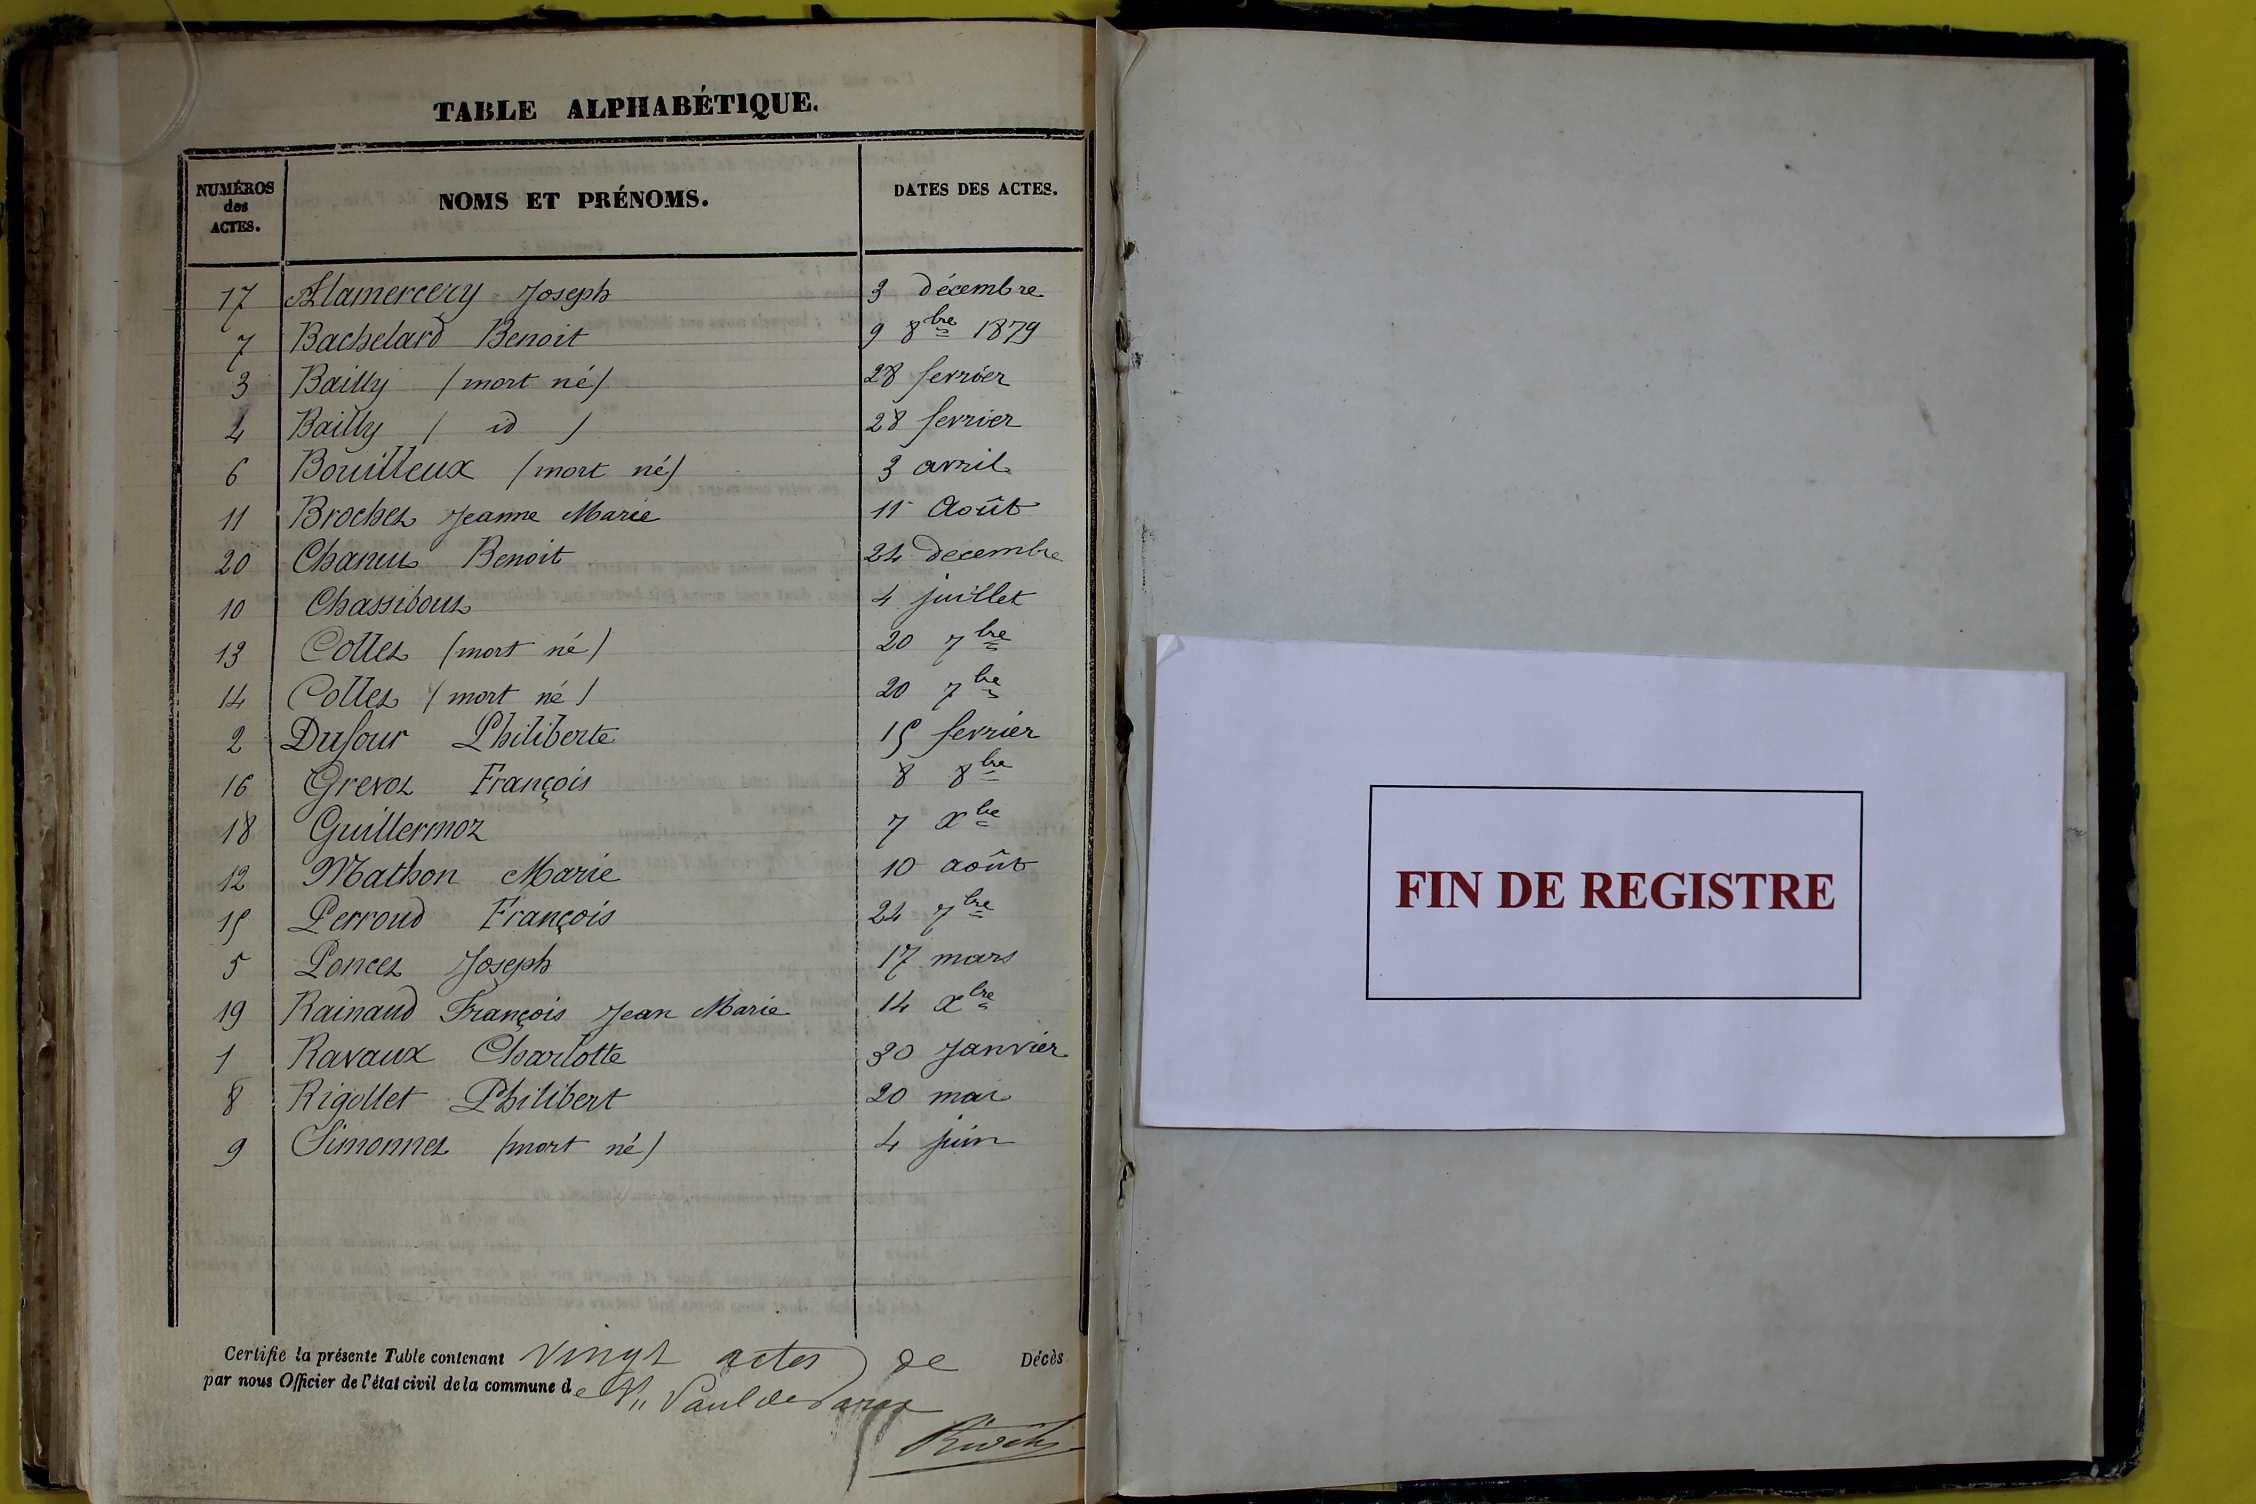 TABLE ALPHABÉTIQUE.
NUMÉROS des ACTES. NOMS ET PRÉNOMS. DATES DES ACTES.
17 Alamercery Joseph 3 décembre
7 Bachelard Benoit 9 8bre 1879
3 Bailly (mort né) 28 fevrier
4 Bailly ( id ) 28 fevrier
6 Bouilleux (mort né) 3 avril
11 Brochet Jeanne Marie 11 Août
20 Chanut Benoit 24 decembre
10 Chassibout 4 juillet
13 Collet (mort né) 20 7bre
14 Collet (mort né) 20 7bre
2 Dufour Philiberte 15 fevrier
16 Grevoz François 8 8bre
18 Guillermoz 7 Xbre
12 Mathon Marie 10 août
15 Perroud François 24 7bre
5 Poncet Joseph 17 mars
19 Rainaud François Jean Marie 14 Xbre
1 Ravaux Charlotte 30 Janvier
8 Rigollet Philibert 20 mai
9 Simonnet (mort né) 4 juin
Certifie la présente Table contenant vingt actes de Décès
par nous Officier de l'état civil de la commune de St Paul de Varax
FIN DE REGISTRE